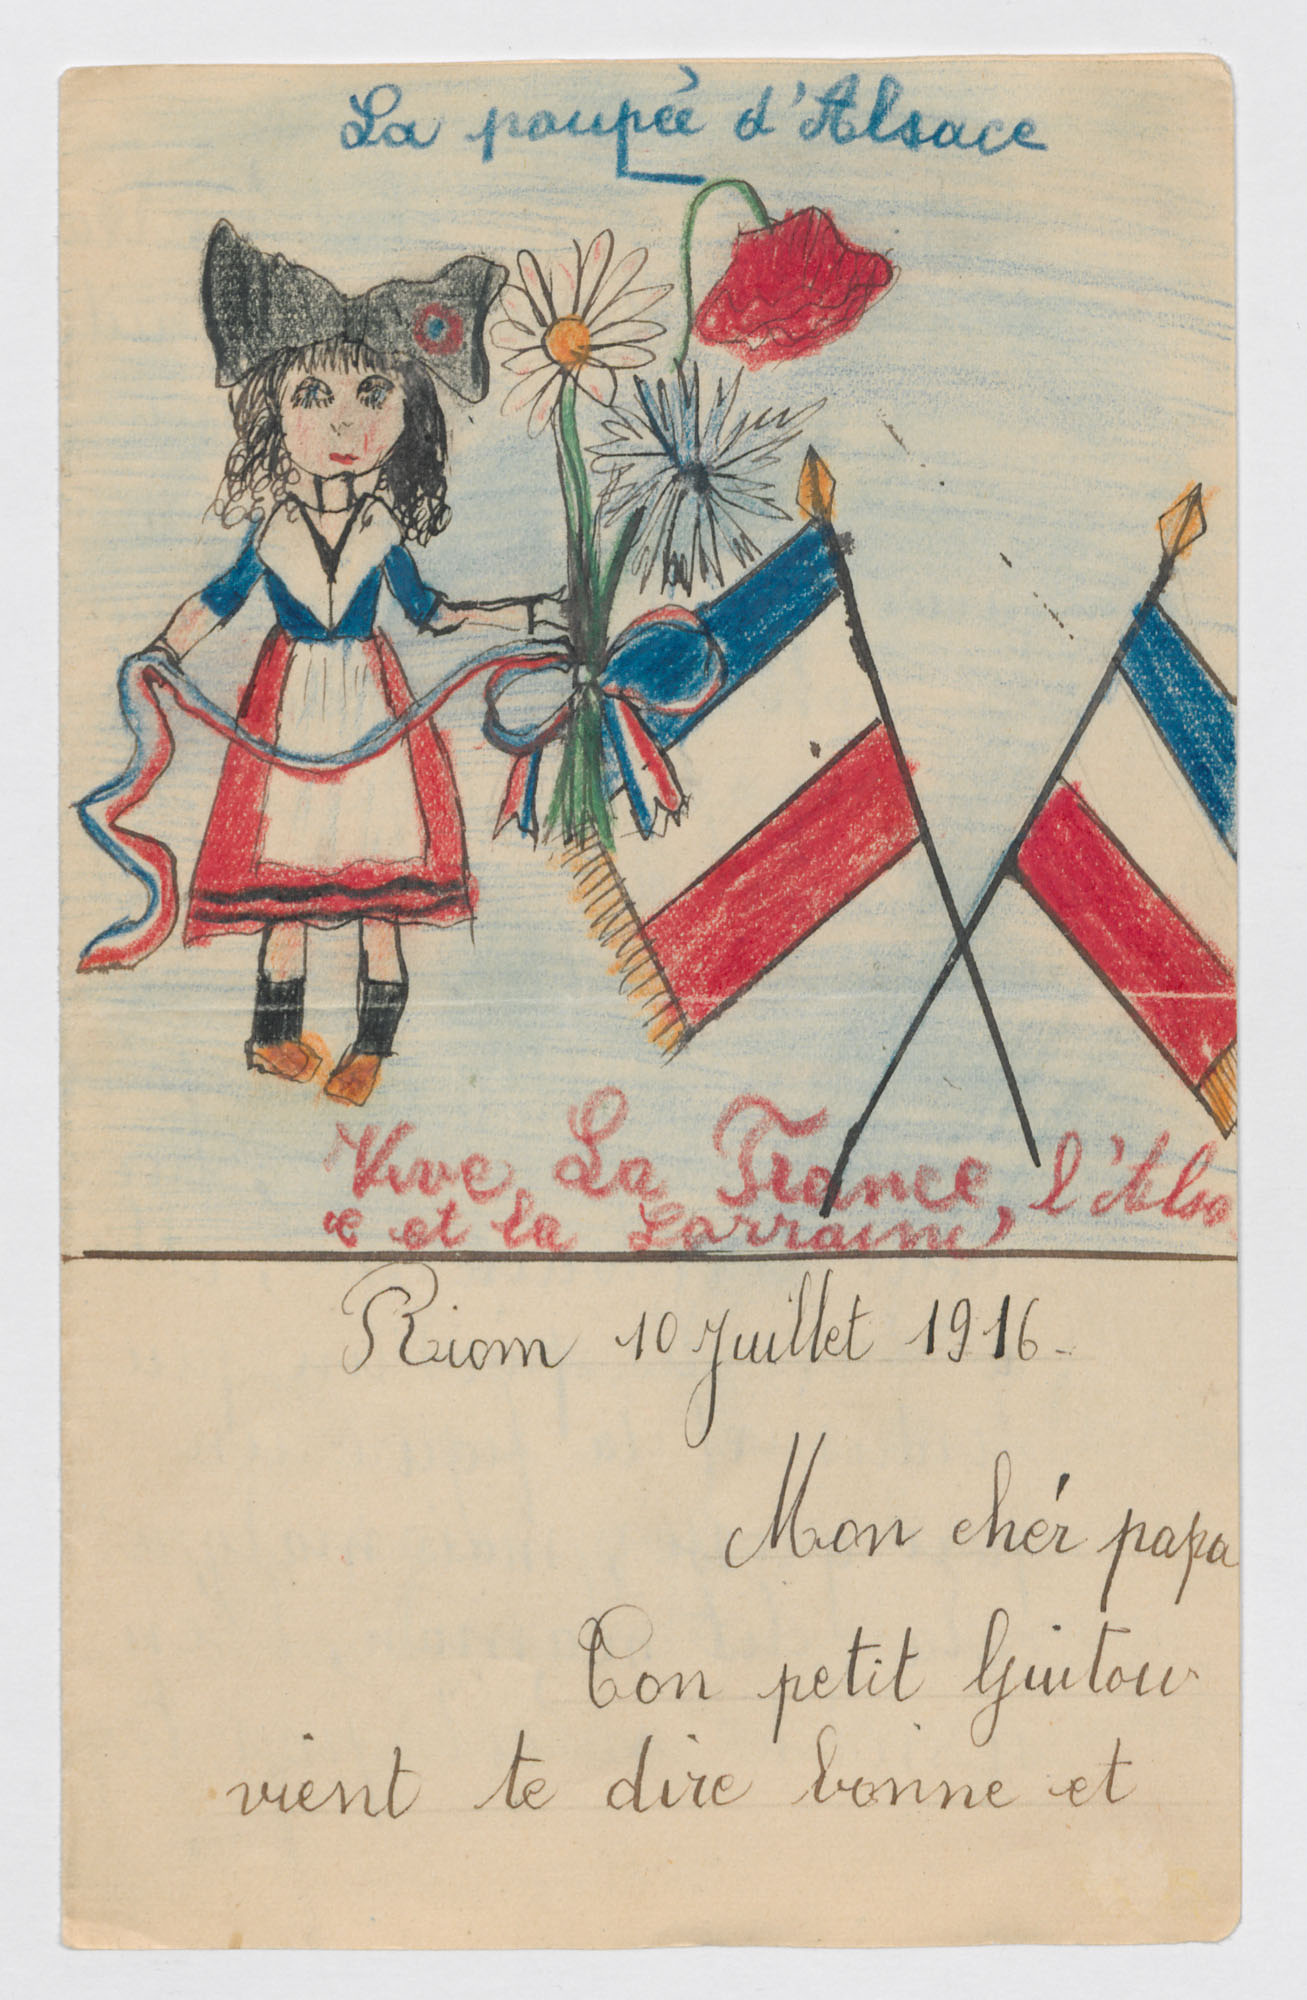 La poupée d'Alsace
Vive La France, l'Alsa
ce et la Lorraine,
Riom 10 Juillet 1916 -
Mon chér papa
Ton petit Guitou
vient te dire bonne et